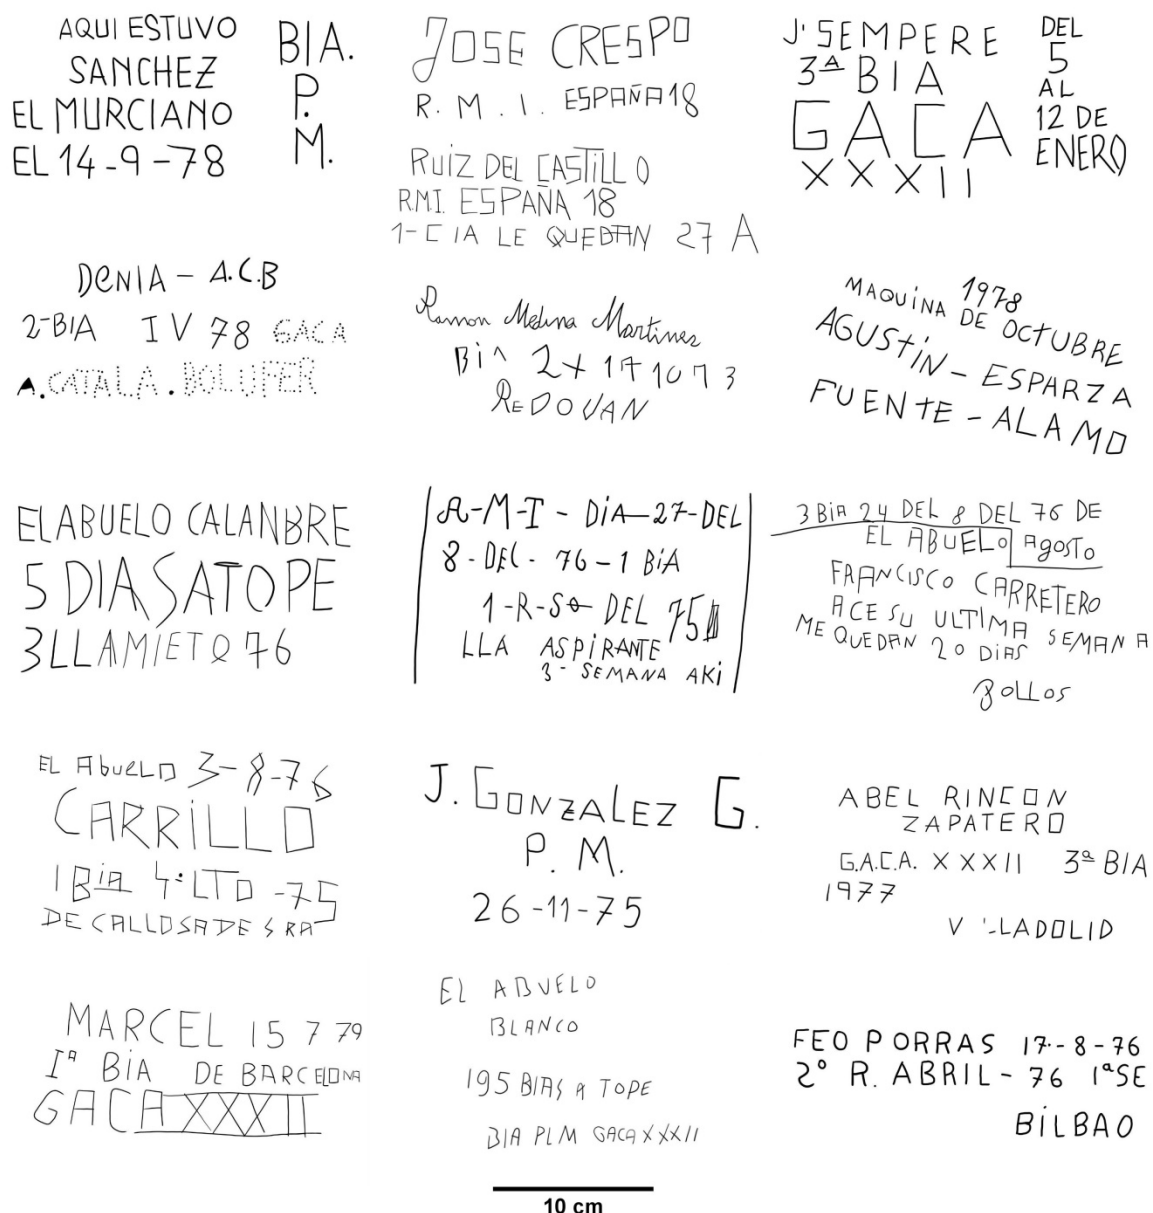 AQUI ESTUVO
SANCHEZ
EL MURCIANO
EL 14-9-78
BIA.
P.
M.
JOSE CRESPO
R. M. I. ESPAÑA 18
RUIZ DEL CASTILLO
R.M.I. ESPAÑA 18
1- CIA LE QUEDAN 27 A
J. SEMPERE
3ª BIA
GACA
XXXII
DEL
5
AL
12 DE
ENERO
DENIA - A.C.B
2-BIA IV 78 GACA
A. CATALA. BOLUFER
Ramon Medina Martinez
BIA 2+
REDOVAN
1978
MAQUINA DE OCTUBRE
AGUSTIN - ESPARZA
FUENTE - ALAMO
EL ABUELO CALANBRE
5 DIAS A TOPE
3 LLAMIETO 76
A-M-T - DIA-27-DEL
8-DEL-76-1 BIA
1-R-SO DEL 75
LLA ASPIRANTE
3- SEMANA AKI
3 BIA 24 DEL 8 DEL 76 DE
EL ABUELO AgosTo
FRANCISCO CARRETERO
ACE SU ULTIMA SEMANA
ME QUEDAN 20 DIAS
BOLLOS
EL AbuELO 3-8-76
CARRILLO
1 Bia 4º LTO -75
DE CALLOSA DE SRA
J. GONZALEZ G.
P. M.
26-11-75
ABEL RINCON
ZAPATERO
G.A.C.A. XXXII 3ª BIA
1977
V LLADOLID
MARCEL 15 7 79
Iª BIA DE BARCELONA
GACA XXXII
EL ABUELO
BLANCO
195 BIAS A TOPE
BIA PLM GACA XXXII
FEO PORRAS 17-8-76
2º R. ABRIL - 76 1ª SE
BILBAO
10 cm